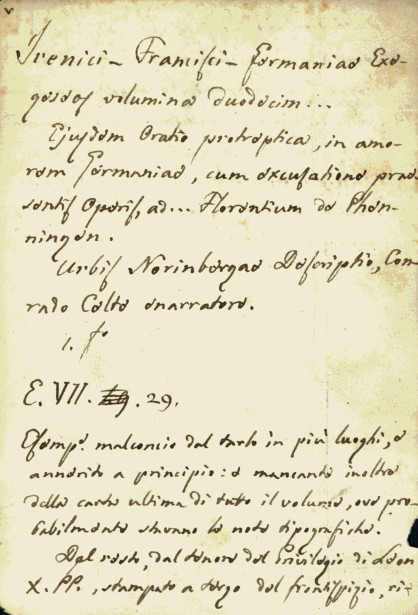 Irenici – Francisci – Germaniae Exe-
geseos volumina duodecim...
Ejusdem Oratio protreptica, in amo-
rem Germaniae, cum excusatione prae-
sentis Operis, ad... Florentium de Phen-
ningen.
Urbis Norinbergae Descriptio, Con-
rado Celte enarratore.
1. fo
E. VII. 29.
Esemp.e malconcio dal tarlo in più luoghi, e
annerito a principio: e mancante inoltre
della carta ultima di tutto il volume, ove pro-
babilmente stavano le note tipografiche.
Del resto, dal tenore del Privilegio di Leon
X. PP., stampato a tergo del frontispizio, ri-